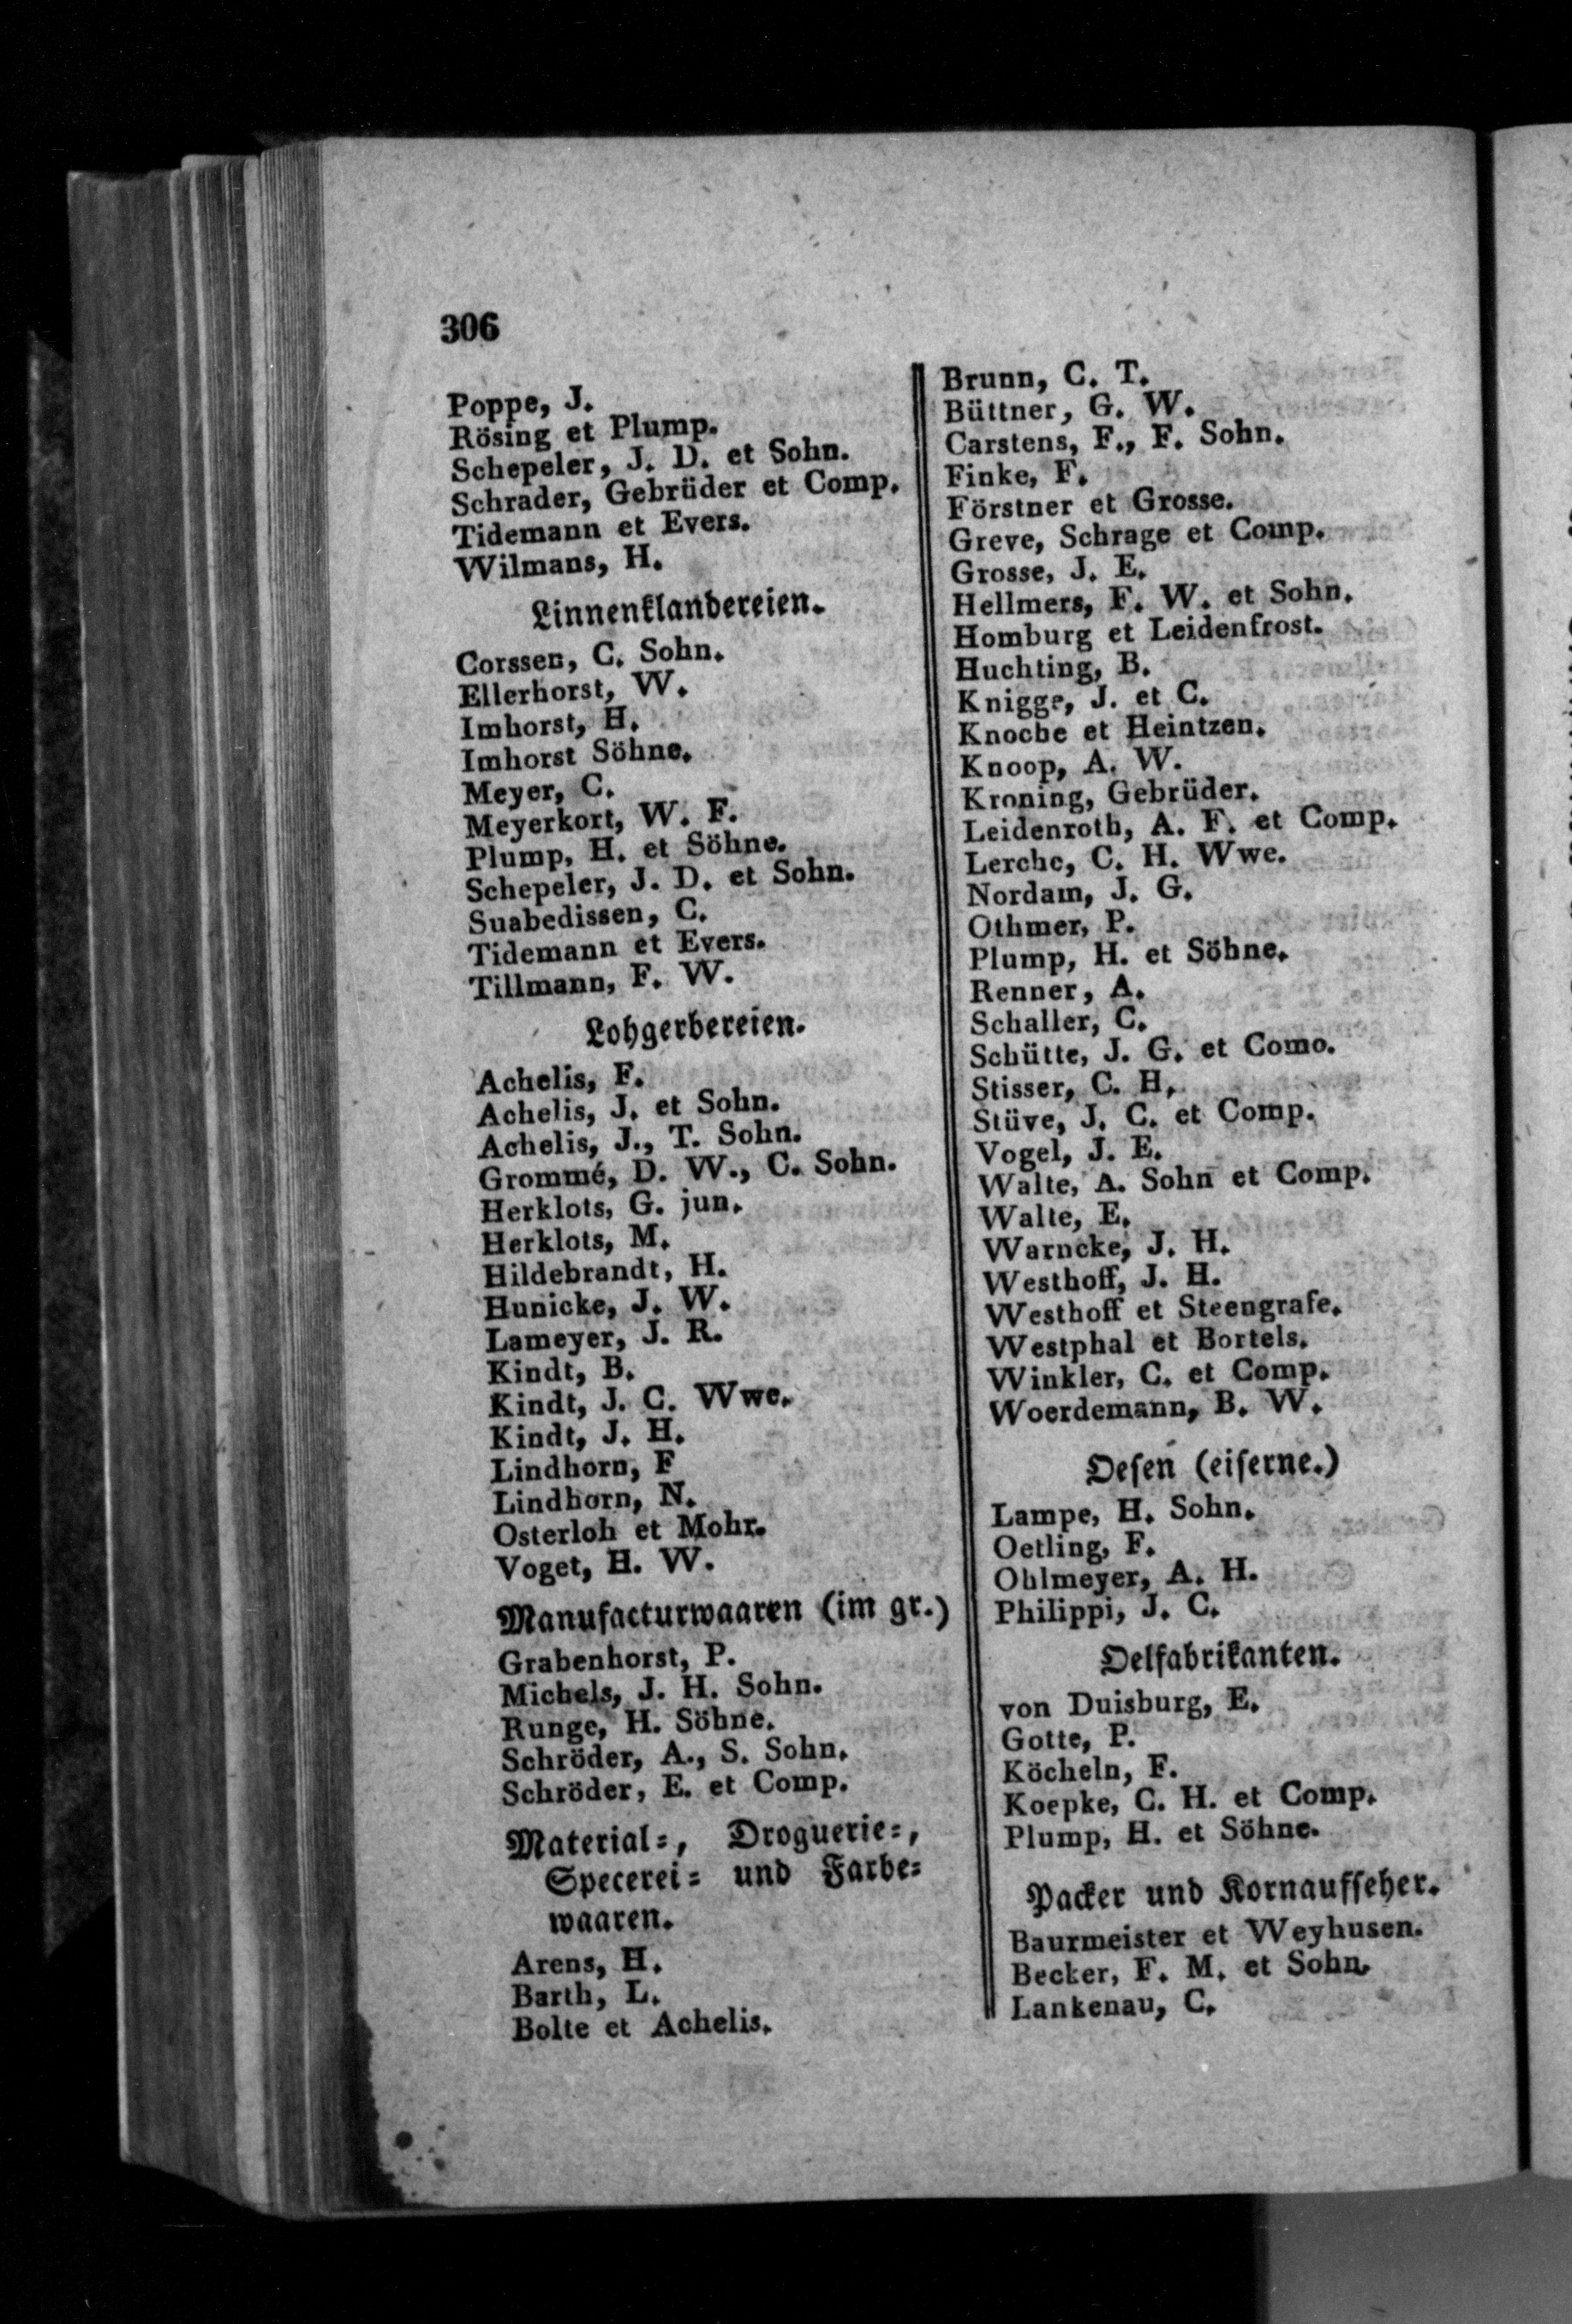 306
Poppe, J.
Rösing et Plump.
Schepeler, J. D. et Sohn.
Schrader, Gebrüder et Comp.
Tidemann et Evers.
Wilmans, H.
Linnenklandereien.
Corssen, C. Sohn.
Ellerhorst, W.
Imhorst, H.
Imhorst Söhne.
Meyer, C.
Meyerkort, W. F.
Plump, H. et Söhne.
Schepeler, J. D. et Sohn.
Suabedissen, C.
Tidemann et Evers.
Tillmann, F. W.
Lohgerbereien.
Achelis, F.
Achelis, J. et Sohn.
Achelis, J., T. Sohn.
Grommé, D. W., C. Sohn.
Herklots, G. jun.
Herklots, M.
Hildebrandt, H.
Hunicke, J. W.
Lameyer, J. R.
Kindt, B.
Kindt, J. C. Wwe.
Kindt, J. H.
Lindhorn, F
Lindhorn, N.
Osterloh et Mohr.
Voget, H. W.
Manufacturwaaren (im gr.)
Grabenhorst, P.
Michels, J. H. Sohn.
Runge, H. Söhne.
Schröder, A., S. Sohn.
Schröder, E. et Comp.
Material=, Droguerie=,
Specerei= und Farbe=
waaren.
Arens, H.
Barth, L.
Bolte et Achelis.
Brunn, C. T.
Büttner, G. W.
Carstens, F., F. Sohn.
Finke, F.
Förstner et Grosse.
Greve, Schrage et Comp.
Grosse, J. E.
Hellmers, F. W. et Sohn.
Homburg et Leidenfrost.
Huchting, B.
Knigge, J. et C.
Knoche et Heintzen.
Knoop, A. W.
Kroning, Gebrüder.
Leidenroth, A. F. et Comp.
Lerche, C. H. Wwe.
Nordam, J. G.
Othmer, P.
Plump, H. et Söhne.
Renner, A.
Schaller, C.
Schütte, J. G. et Como.
Stisser, C. H.
Stüve, J. C. et Comp.
Vogel, J. E.
Walte, A. Sohn et Comp.
Walte, E.
Warncke, J. H.
Westhoff, J. H.
Westhoff et Steengrafe.
Westphal et Bortels.
Winkler, C. et Comp.
Woerdemann, B. W.
Oefen (eiserne.)
Lampe, H. Sohn.
Oetling, F.
Ohlmeyer, A. H.
Philippi, J. C.
Oelfabrikanten.
von Duisburg, E.
Gotte, P.
Köcheln, F.
Koepke, C. H. et Comp.
Plump, H. et Söhne.
Packer und Kornaufseher.
Baurmeister et Weyhusen.
Becker, F. M. et Sohn.
Lankenau, C.